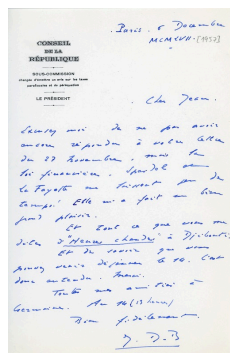 Paris. 6 Décembre
MCMLVII [1957]
CONSEIL
DE LA
RÉPUBLIQUE
SOUS-COMMISSION
chargée d'émettre un avis sur les taxes
parafiscales et de péréquation
LE PRÉSIDENT
Cher Jean.
Excusez moi de ne pas avoir
encore répondu à votre lettre
du 27 Novembre, mais la
loi financière,
La Fayette me laissent peu de
temps! Elle m'a fait un bien
grand plaisir.
Et tout ce que vous me
dites d'"Heures chaudes" à Djibouti.
Et de savoir que vous
pouvez venir déjeuner le 14. C'est
donc entendu. Merci.
Toutes mes amitiés à
Germaine. Au 14 (13 heures)
Bien fidèlement.